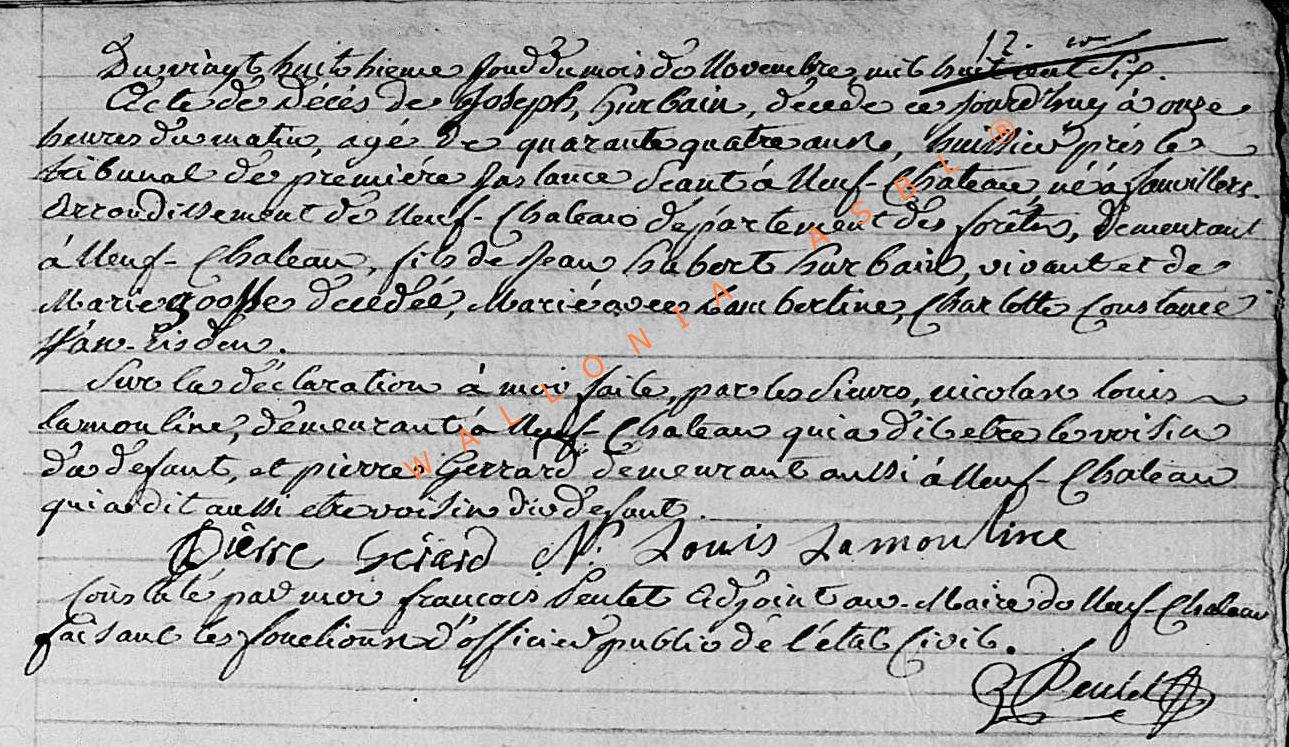 12.
Du vingt huithieme jour du mois de Novembre mil huit cent Six.
Acte de Décès de Joseph, Hurbain, décédé ce jourd'huy à onze
heures du matin, agé de quarante quatre ans, huissier près le
tribunal de première Instance Séant à Neuf-Chateau, né à fauvillers
Arrondissement de Neuf-Chateau département des forêts, Demeurant
à Neuf-Chateau, fils de Jean hubert Hurbain, vivant et de
Marie goosse décédée, Marié avec Lambertine, Charlotte Constance
Sur la déclaration à moi faite, par les Sieurs, nicolas louis
lamouline, demeurant à Neuf-Chateau qui a dit etre le voisin
du defunt, et pierre Gerrard demeurant aussi à Neuf-Chateau
qui a dit aussi etre voisin du defunt.
Pierre Gérard N. Louis Lamouline
Constaté par moi françois Peulet Adjoint au Maire de Neuf-Chateau
faisant les fonctions d'officier public de l'état Civil.
Peulet
WALLONIA ASBL ®